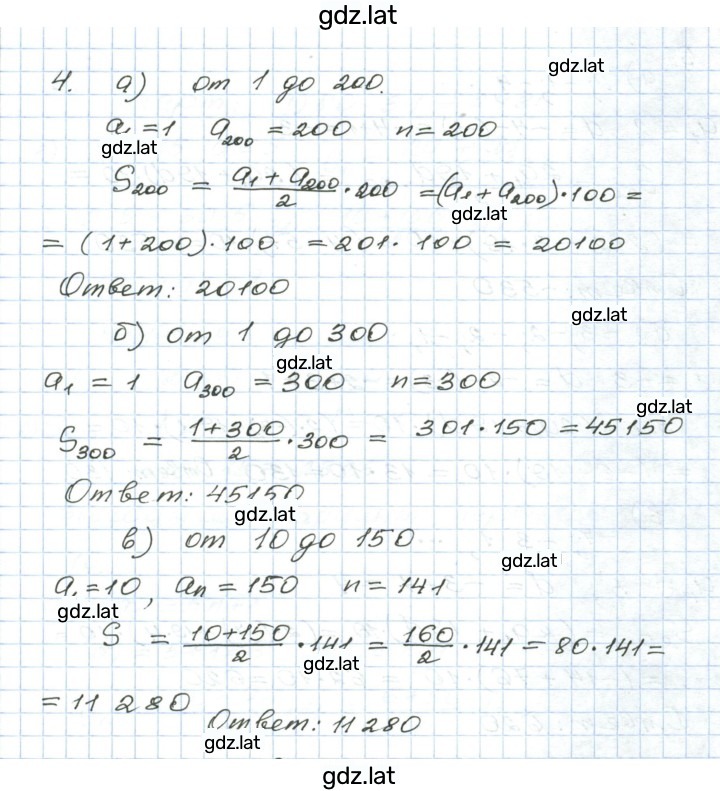 gdz.lat
4. а) от 1 до 200.
gdz.lat
a₁ = 1 a₂₀₀ = 200 n = 200
gdz.lat
S₂₀₀ = (a₁ + a₂₀₀)/2 · 200 = (a₁ + a₂₀₀) · 100 =
gdz.lat
= (1 + 200) · 100 = 201 · 100 = 20100
Ответ: 20100
gdz.lat
б) от 1 до 300
gdz.lat
a₁ = 1 a₃₀₀ = 300 n = 300
gdz.lat
S₃₀₀ = (1 + 300)/2 · 300 = 301 · 150 = 45150
Ответ: 45150
gdz.lat
в) от 10 до 150
gdz.lat
a₁ = 10, aₙ = 150 n = 141
gdz.lat
S = (10+150)/2 · 141 = 160/2 · 141 = 80 · 141 =
gdz.lat
= 11 280
Ответ: 11 280
gdz.lat
gdz.lat